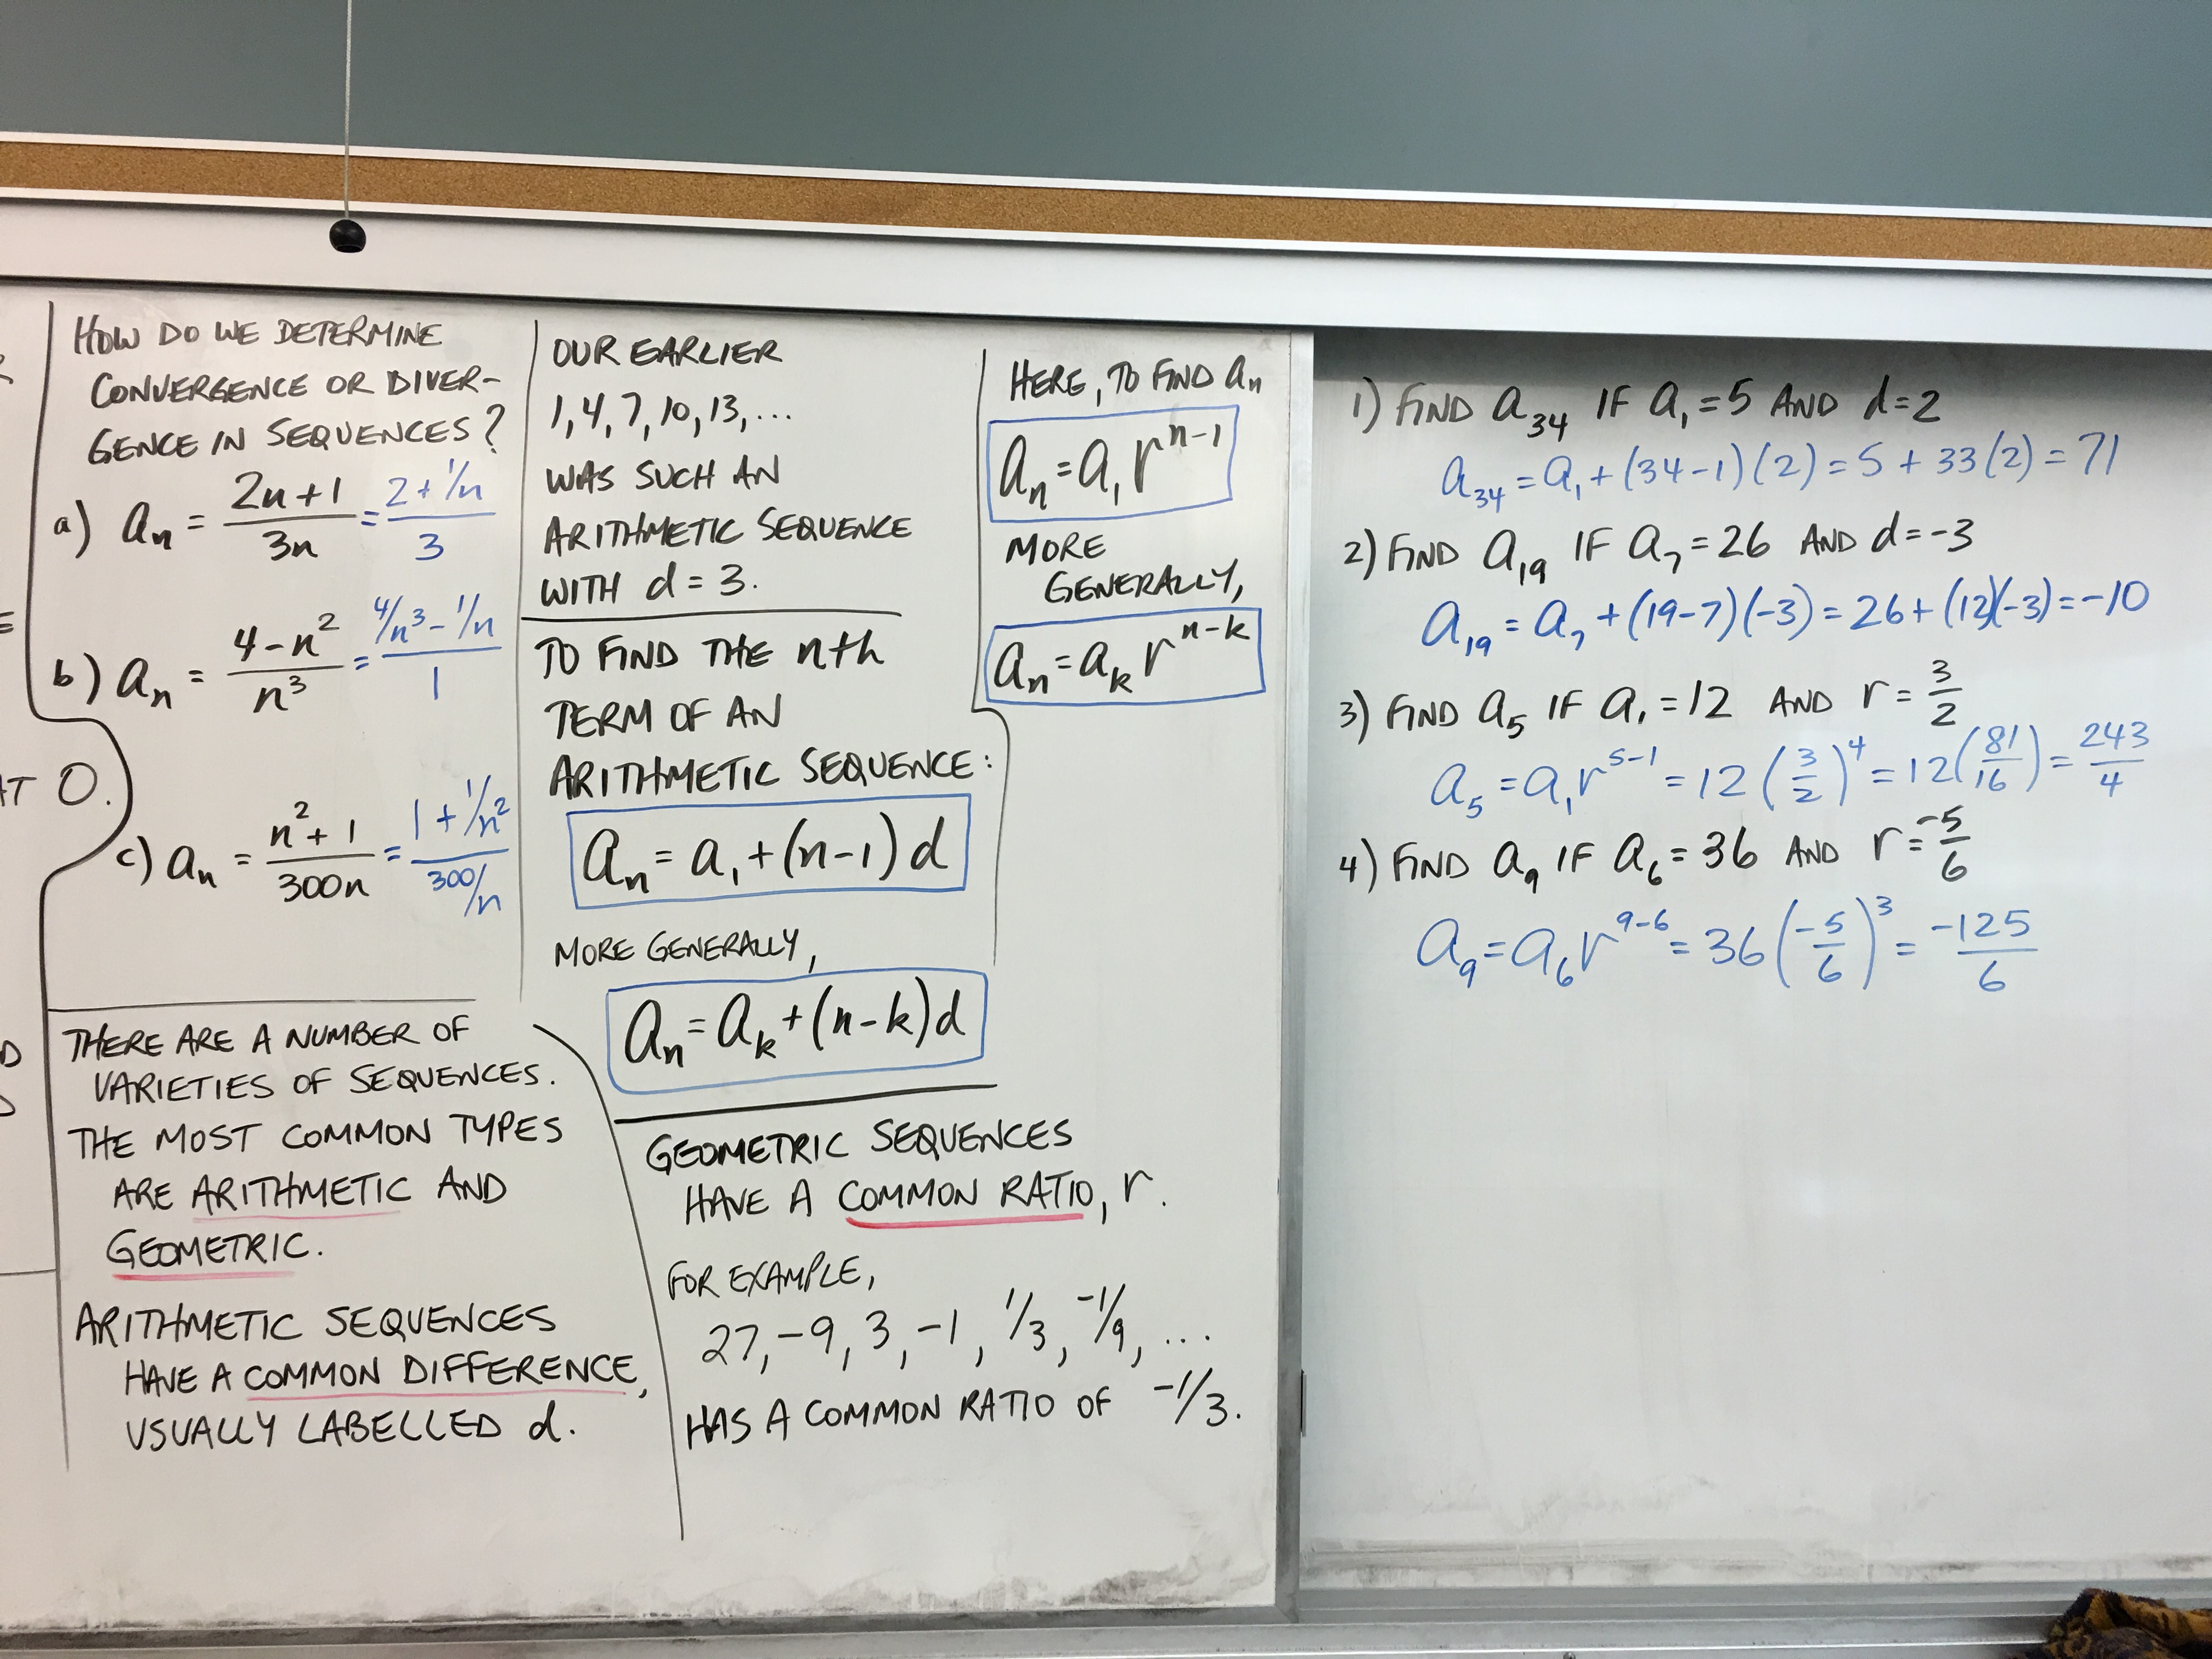 HOW DO WE DETERMINE
CONVERGENCE OR DIVER-
GENCE IN SEQUENCES?
a) aₙ = (2n+1)/(3n) = (2+1/n)/3
b) aₙ = (4-n²)/n³ = (4/n³-1/n)/1
c) aₙ = (n²+1)/(300n) = (1+1/n²)/(300/n)
AT 0.
THERE ARE A NUMBER OF
VARIETIES OF SEQUENCES.
THE MOST COMMON TYPES
ARE ARITHMETIC AND
GEOMETRIC.
ARITHMETIC SEQUENCES
HAVE A COMMON DIFFERENCE,
USUALLY LABELLED d.
OUR EARLIER
1, 4, 7, 10, 13, ...
WAS SUCH AN
ARITHMETIC SEQUENCE
WITH d = 3.
TO FIND THE nth
TERM OF AN
ARITHMETIC SEQUENCE:
aₙ = a₁ + (n-1)d
MORE GENERALLY,
aₙ = aₖ + (n-k)d
GEOMETRIC SEQUENCES
HAVE A COMMON RATIO, r.
FOR EXAMPLE,
27, -9, 3, -1, 1/3, -1/9, ...
HAS A COMMON RATIO OF -1/3.
HERE, TO FIND aₙ
aₙ = a₁rⁿ⁻¹
MORE
GENERALLY,
aₙ = aₖrⁿ⁻ᵏ
1) FIND a₃₄ IF a₁ = 5 AND d = 2
a₃₄ = a₁ + (34-1)(2) = 5 + 33(2) = 71
2) FIND a₁₉ IF a₇ = 26 AND d = -3
a₁₉ = a₇ + (19-7)(-3) = 26 + (12)(-3) = -10
3) FIND a₅ IF a₁ = 12 AND r = 3/2
a₅ = a₁r⁵⁻¹ = 12(3/2)⁴ = 12(81/16) = 243/4
4) FIND a₉ IF a₆ = 36 AND r = -5/6
a₉ = a₆r⁹⁻⁶ = 36(-5/6)³ = -125/6